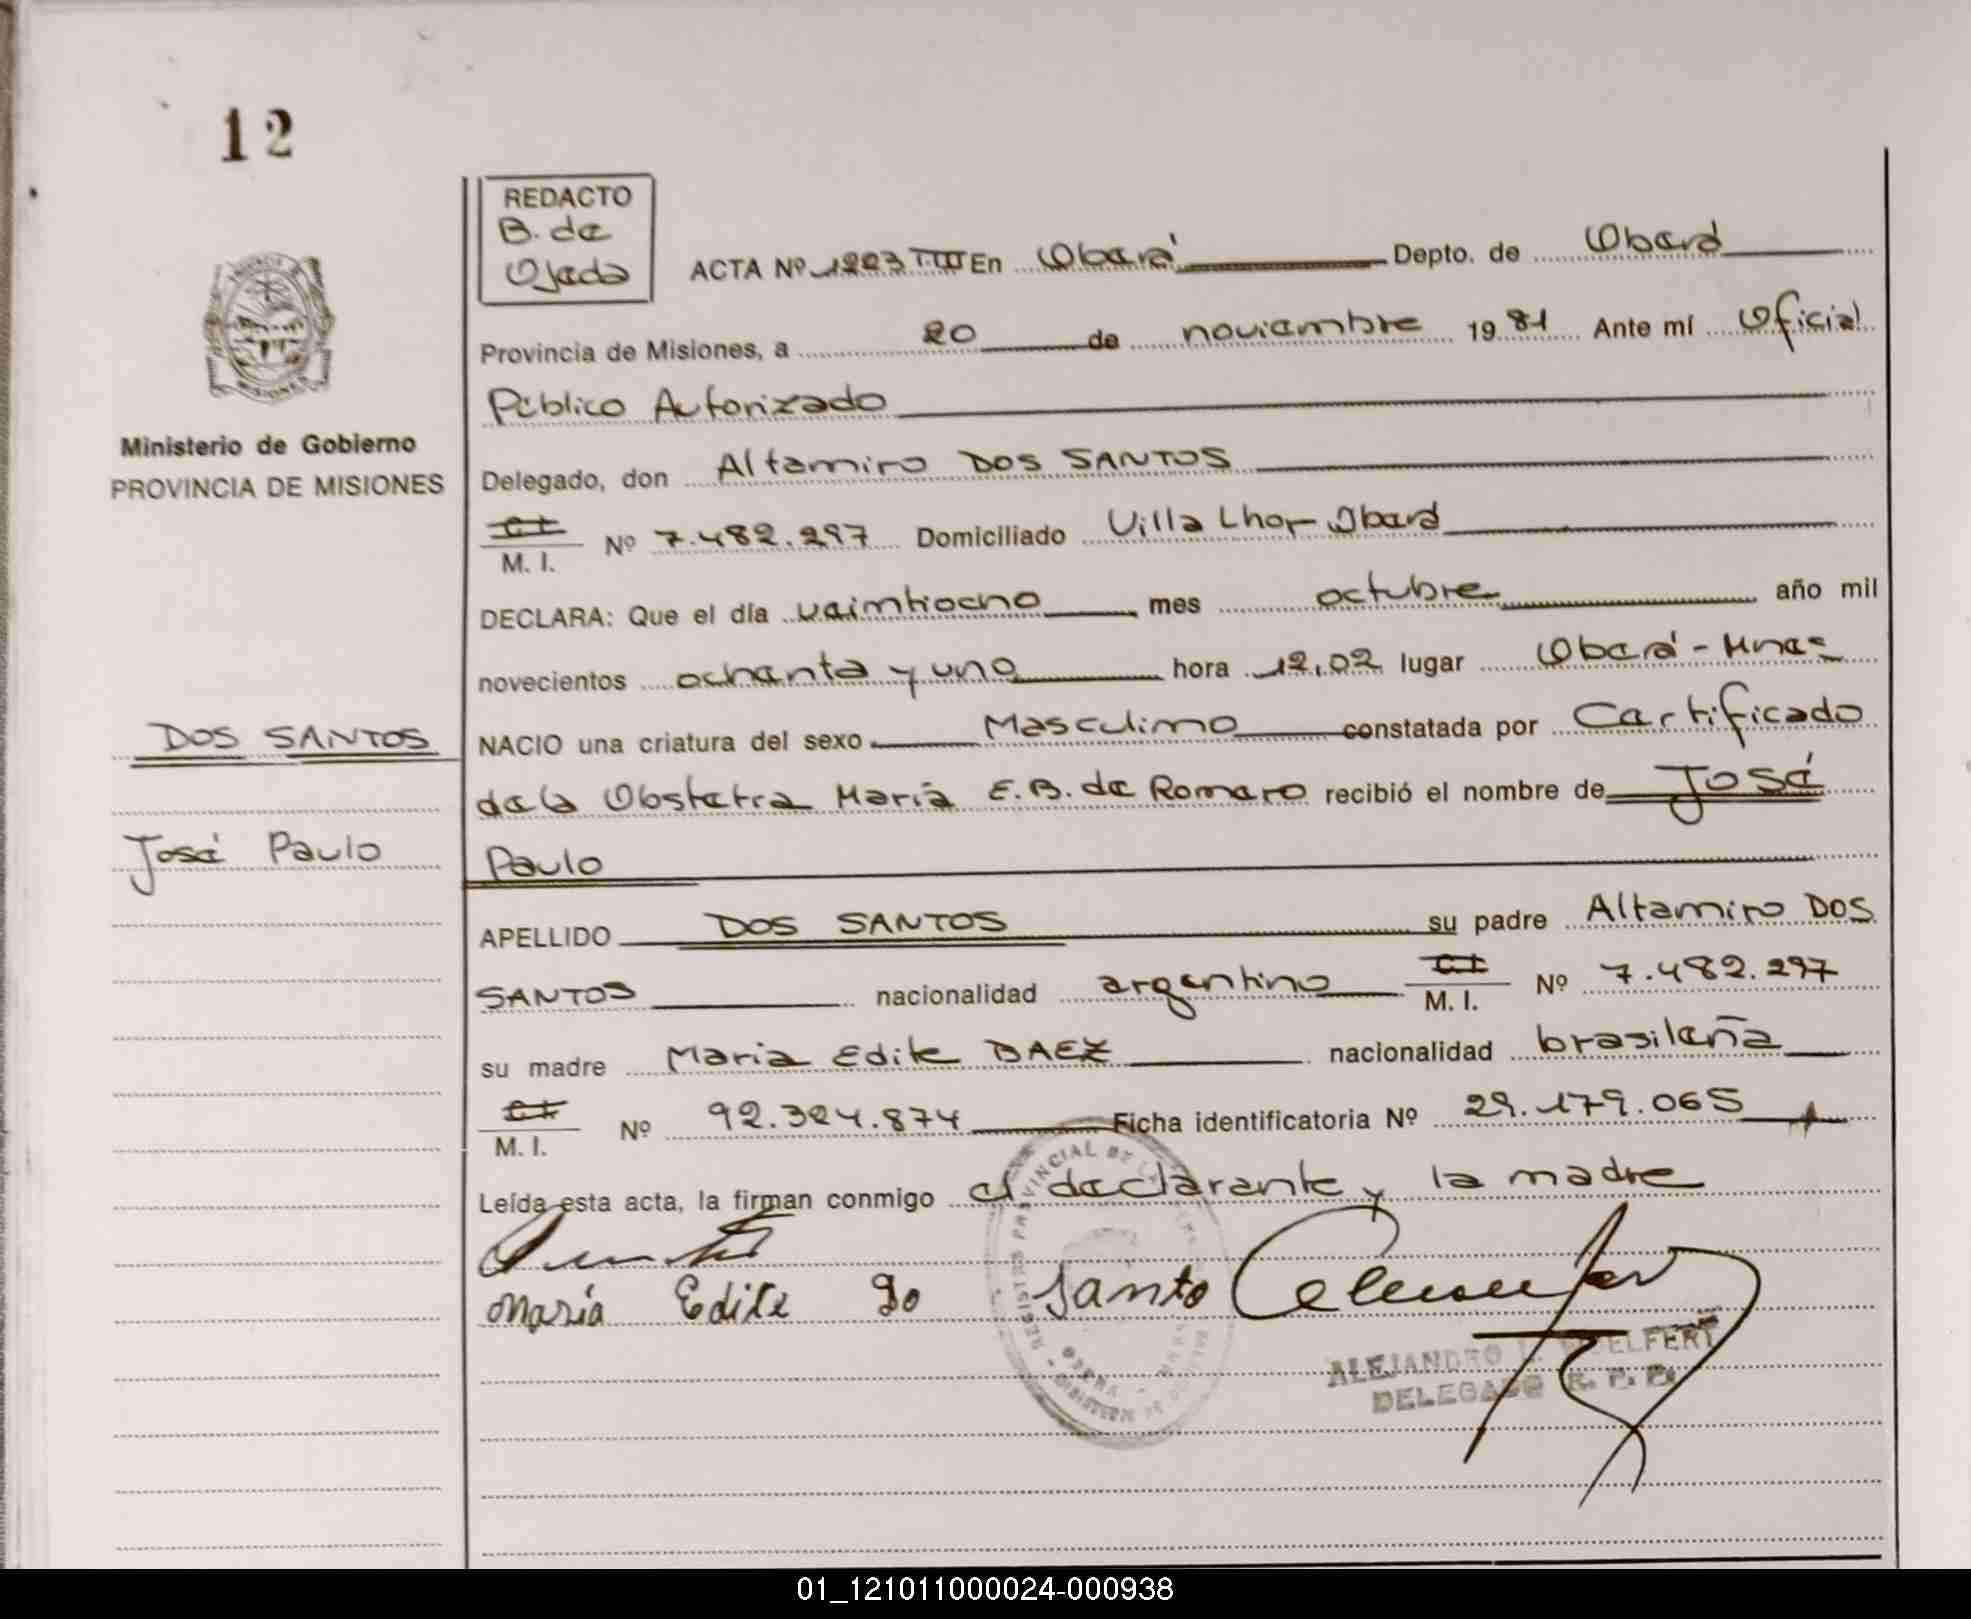 12
REDACTO
B. de
Ojeda
ACTA Nº 1223 T III En Oberá Depto. de Oberá
Provincia de Misiones, a 20 de noviembre 1981 Ante mí Oficial
Público Autorizado
Ministerio de Gobierno
PROVINCIA DE MISIONES
Delegado, don Altamiro DOS SANTOS
C.I. M. I. Nº 7.482.297 Domiciliado Villa Lhor-Oberá
DECLARA: Que el día veintiocho mes octubre año mil
novecientos ochenta y uno hora 12,02 lugar Oberá-Mnes
DOS SANTOS
NACIO una criatura del sexo Masculino constatada por Certificado
de la Obstetra María E.B. de Romero recibió el nombre de José
José Paulo
Paulo
APELLIDO DOS SANTOS su padre Altamiro DOS
SANTOS nacionalidad argentino C.I. M. I. Nº 7.482.297
su madre Maria Edite BAEZ nacionalidad brasileña
C.I. M. I. Nº 92.324.874 Ficha identificatoria Nº 29.179.065
Leída esta acta, la firman conmigo el declarante y la madre
María Edite Do Santo
ALEJANDRO
DELEGADO R. P. P.
01_121011000024-000938